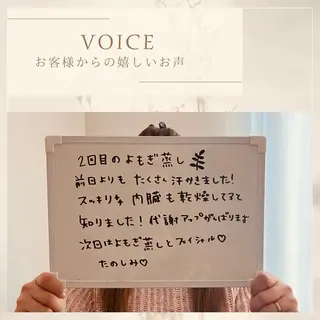 VOICE
お客様からの嬉しいお声
2回目のよもぎ蒸し
前回よりも たくさん汗かきました!
スッキリ 内臓も乾燥してると
知りました! 代謝アップがんばります
次回はよもぎ蒸しとフェイシャル♡
たのしみ♡